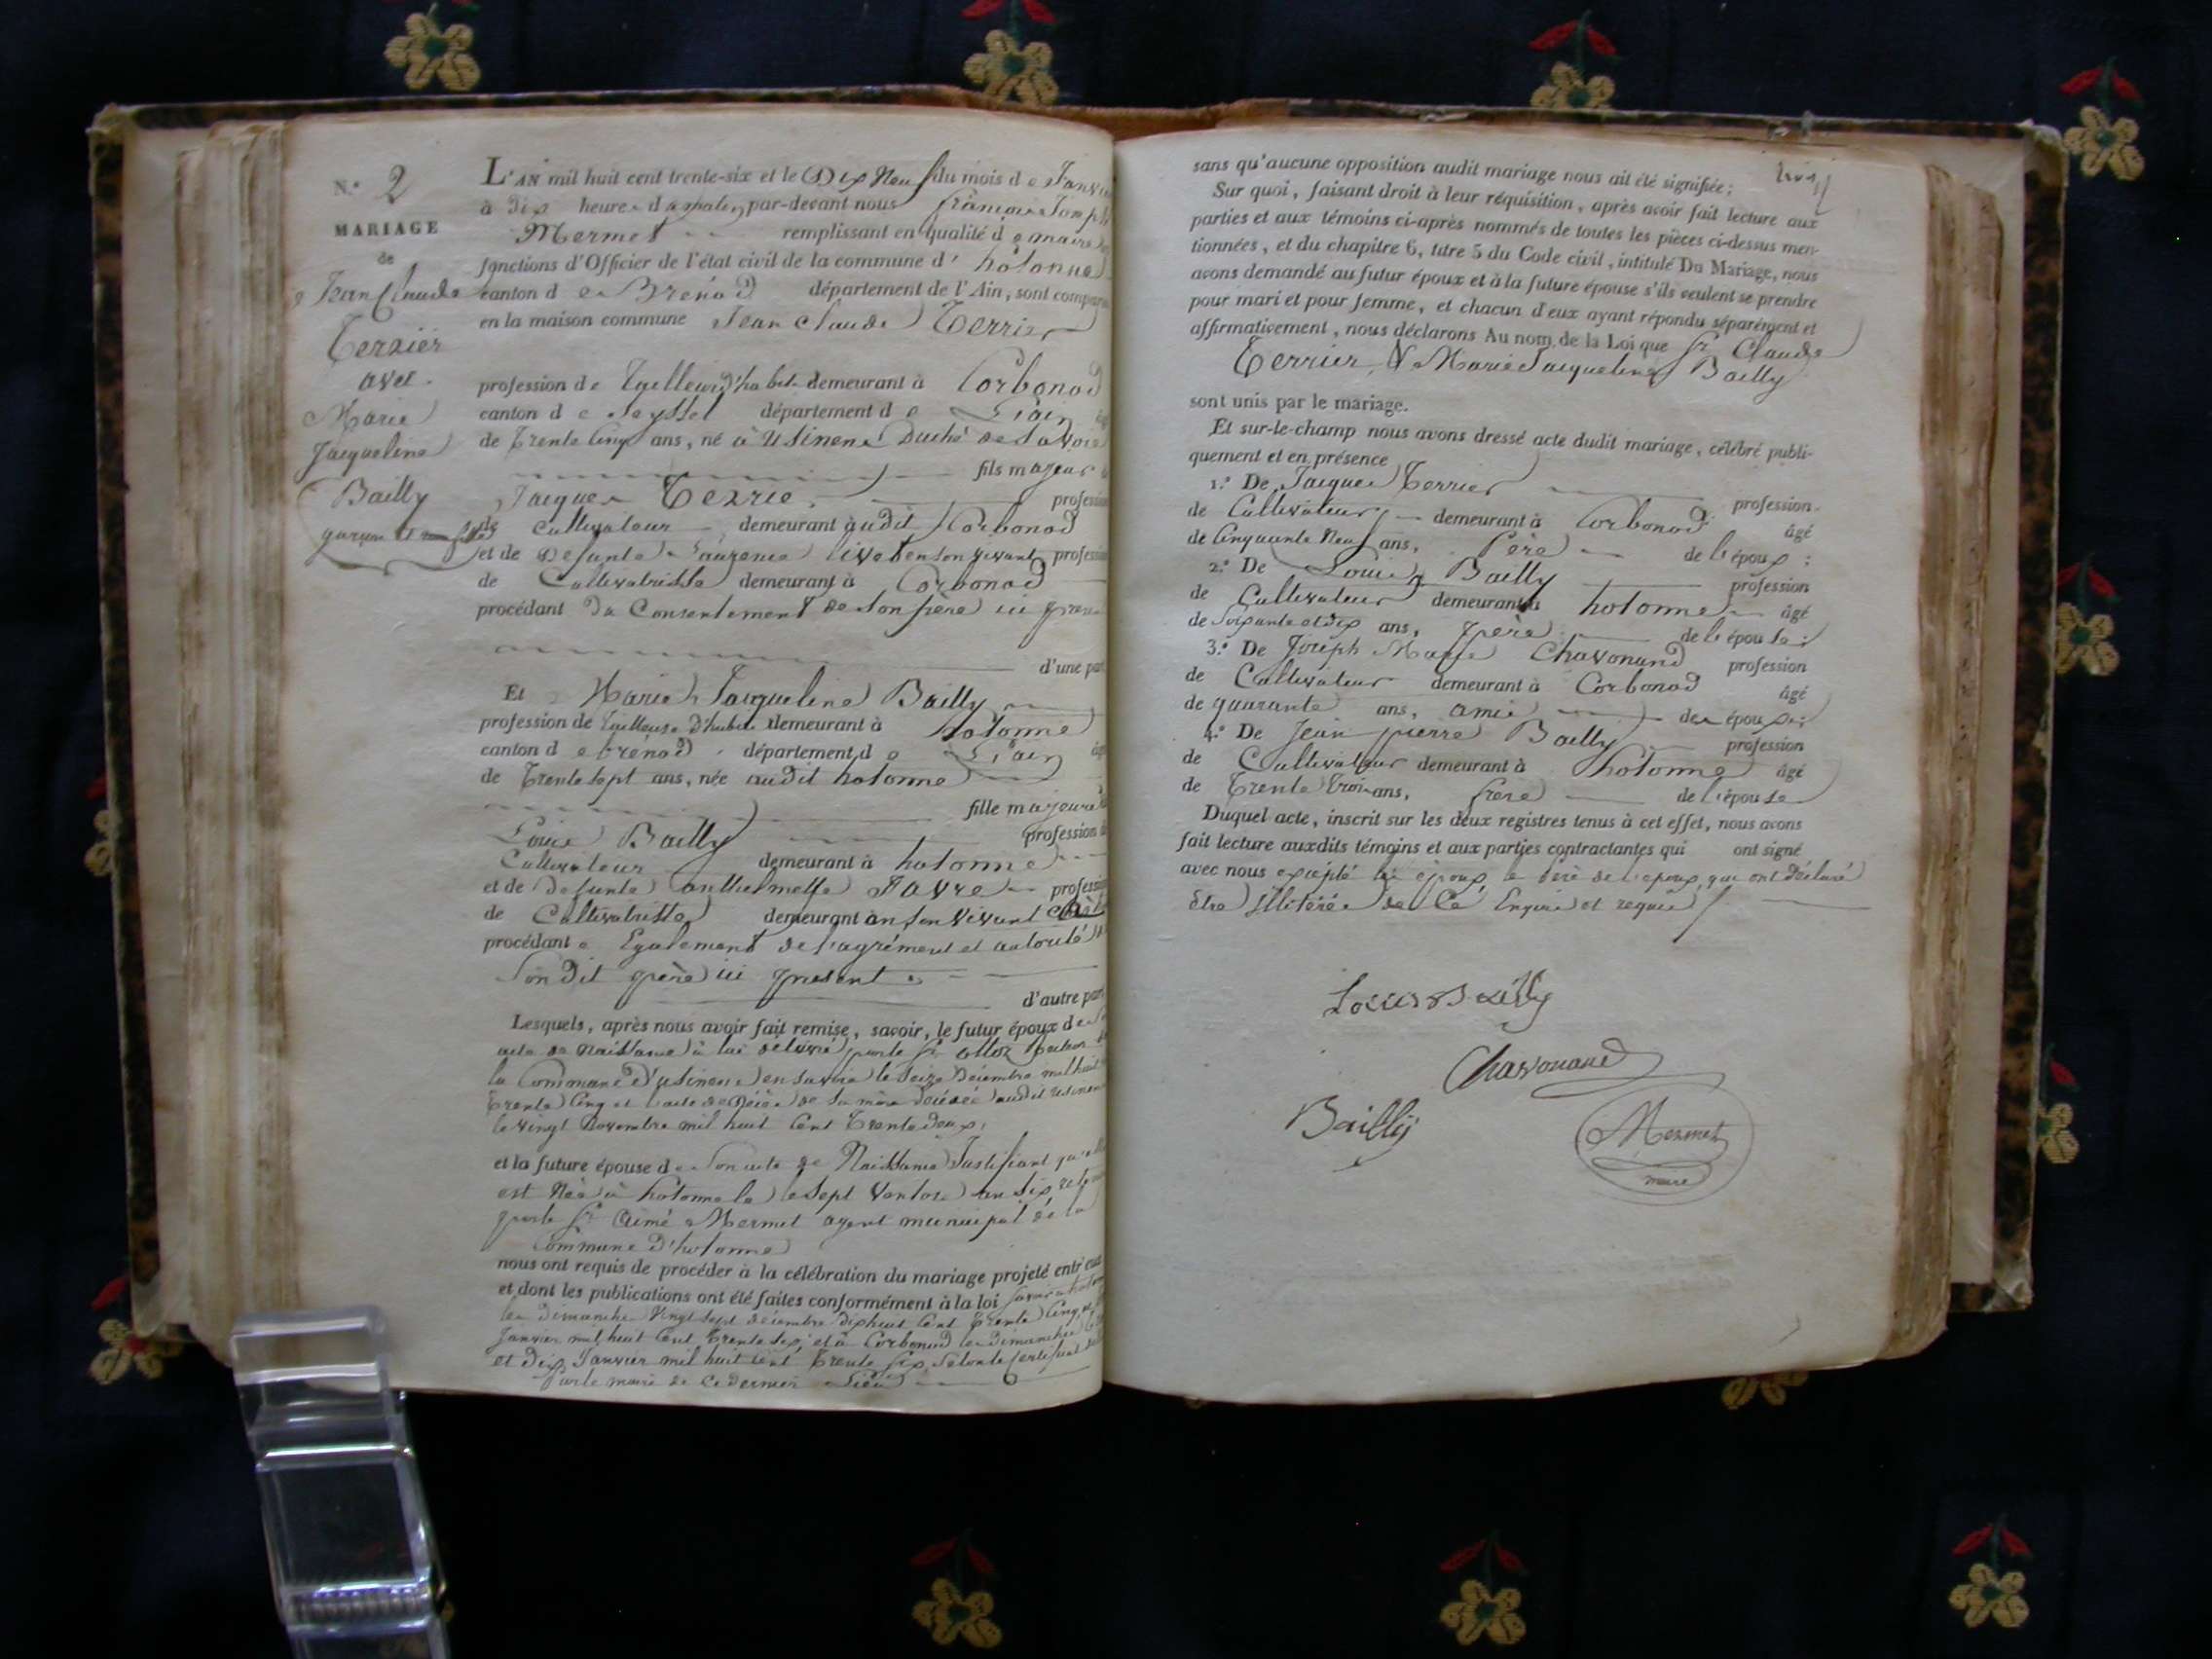 N.º 2
MARIAGE
de
Jean Claude
Terrier
avec
Marie
Jacqueline
Bailly
garçon et
L'AN mil huit cent trente-six et le Dix Neuf du mois de Janvier
à Dix heures du matin, par-devant nous françois Joseph
Mermet remplissant en qualité de maire
fonctions d'Officier de l'état civil de la commune d' hotonne
canton de Brénod département de l'Ain, sont comparus
en la maison commune Jean Claude Terrier
profession de Tailleur d'habit demeurant à Corbonod
canton de Seyssel département de L'ain
de Trente Cinq ans, né à Usinens Duché de Savoie
fils majeur
Jacques Terrier profession
de Cultivateur demeurant audit Corbonod
et de Defunte Laurence en son vivant profession
de Cultivatrisse demeurant à Corbonod
procédant du Consentement de son père ici présent
d'une part
Et Marie Jacqueline Bailly
profession de Tailleuse d'habit demeurant à hotonne
canton de brénod département de L'ain
de Trente sept ans, née audit hotonne
fille majeure
Louis Bailly profession de
Cultivateur demeurant à hotonne
et de Defunte anthelmette Favre profession
de Cultivatrisse demeurant en son vivant
procédante Egalement de l'agrément et autorité de
son dit père ici présent
d'autre part
Lesquels, après nous avoir fait remise, savoir, le futur époux de
acte de Naissance à lui délivré par le Sr Recteur de
la Commune d'usinens en savoie le seize Decembre mil huit
trente Cinq et l'acte de Décès de sa mère décédée audit usinens
le vingt Novembre mil huit Cent Trente deux,
et la future épouse de son acte de Naissance Justifiant qu'elle
est Née à hotonne le sept Ventose an six
par le Sr Aimé Mermet agent municipal de la
Commune d'hotonne
nous ont requis de procéder à la célébration du mariage projeté entr'eux
et dont les publications ont été faites conformément à la loi savoir à hotonne
les Dimanche Vingt sept décembre dix huit Cent Trente Cinq et
Janvier mil huit Cent Trente six, et à Corbonod les Dimanches
et Dix Janvier mil huit cent Trente six, selon le Certificat
par le maire de ce dernier Lieu
sans qu'aucune opposition audit mariage nous ait été signifiée;
Sur quoi, faisant droit à leur réquisition, après avoir fait lecture aux
parties et aux témoins ci-après nommés de toutes les pièces ci-dessus men-
tionnées, et du chapitre 6, titre 5 du Code civil, intitulé Du Mariage, nous
avons demandé au futur époux et à la future épouse s'ils veulent se prendre
pour mari et pour femme, et chacun d'eux ayant répondu séparément et
affirmativement, nous déclarons Au nom de la Loi que Claude
Terrier & Marie Jacqueline Bailly
sont unis par le mariage.
Et sur-le-champ nous avons dressé acte dudit mariage, célébré publi-
quement et en présence
1.º De Jacques Terrier profession
de Cultivateur demeurant à Corbonod âgé
de Cinquante Neuf ans, Père de l'époux;
2.º De Louis Bailly profession
de Cultivateur demeurant à hotonne âgé
de Soixante et dix ans, père de l'épouse;
3.º De Joseph Marie Chavonand profession
de Cultivateur demeurant à Corbonod âgé
de quarante ans, amie des époux;
4.º De Jean pierre Bailly profession
de Cultivateur demeurant à hotonne âgé
de Trente trois ans, frere de l'épouse
Duquel acte, inscrit sur les deux registres tenus à cet effet, nous avons
fait lecture auxdits témoins et aux parties contractantes qui ont signé
avec nous excepté les époux, le père de l'époux qui ont déclaré
être illitérés de ce Enquis et requis
Louis Bailly
Chavonand
Bailly
Mermet
maire